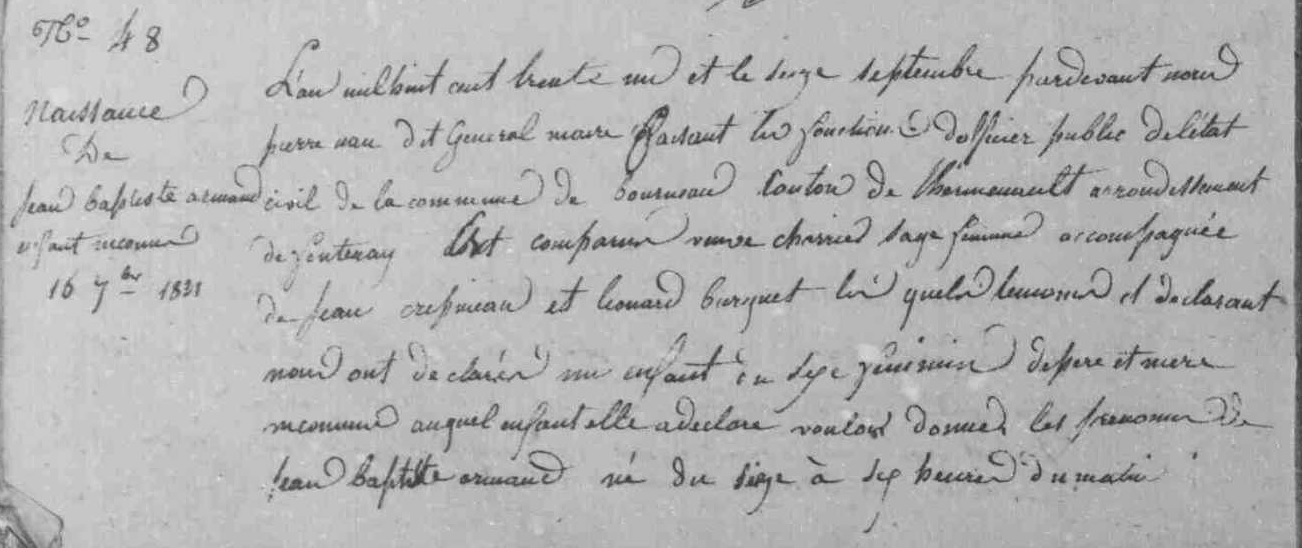 No 48
Naissance
De
jean baptiste armand
enfant inconnu
16 7bre 1831
L'an mil huit cent trente un et le seize septembre pardevant nous
pierre nau dit General maire faisant les fonctions d'officier public de létat
civil de la commune de bourneau Canton de lhermenault arrondissement
de fontenay Est comparue veuve charrier sage femme accompagnée
de jean crepineau et leonard burquet les quels temoins et declarant
nous ont declarér un enfant du sexe feminin de pere et mere
inconnus auquel enfant elle a declare vouloir donner les prenoms de
jean baptiste armand né du seize à six heures du matin